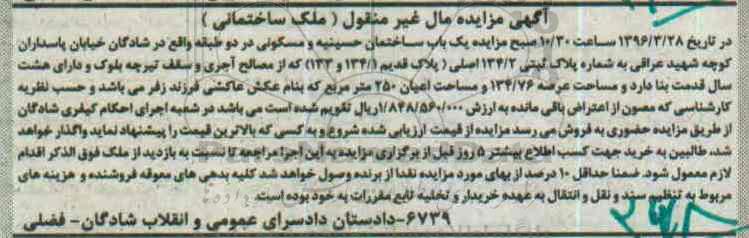 آگهی مزایده مال غیر منقول ( ملک ساختمانی )
در تاریخ ۱۳۹۶/۳/۲۸ ساعت ۱۰/۳۰ صبح مزایده یک باب ساختمان حسینیه و مسکونی در دو طبقه واقع در شادگان خیابان پاسداران
کوچه شهید عراقی به شماره پلاک ثبتی ۱۳۴/۲ اصلی ( پلاک قدیم ۱۳۴/۱ و ۱۳۳) که از مصالح آجری و سقف تیرچه بلوک و دارای هشت
سال قدمت بنا دارد و مساحت عرصه ۱۳۴/۷۶ و مساحت اعیان ۲۵۰ متر مربع که بنام عکش عاکشی فرزند زفر می باشد و حسب نظریه
کارشناسی که مصون از اعتراض باقی مانده به ارزش ۱/۸۴۸/۵۶۰/۰۰۰ریال تقویم شده است می باشد در شعبه اجرای احکام کیفری شادگان
از طریق مزایده حضوری به فروش می رسد مزایده از قیمت ارزیابی شده شروع و به کسی که بالاترین قیمت را پیشنهاد نماید واگذار خواهد
شد، طالبین به خرید جهت کسب اطلاع بیشتر ۵ روز قبل از برگزاری مزایده به این اجرا مراجعه تا نسبت به بازدید از ملک فوق الذکر اقدام
لازم معمول شود. ضمنا حداقل ۱۰ درصد از بهای مورد مزایده نقدا از برنده وصول خواهد شد کلیه بدهی های معوقه فروشنده و هزینه های
مربوط به تنظیم سند و نقل و انتقال به عهده خریدار و تخلیه تابع مقررات به خود بوده است.
۶۷۳۹-دادستان دادسرای عمومی و انقلاب شادگان- فضلی